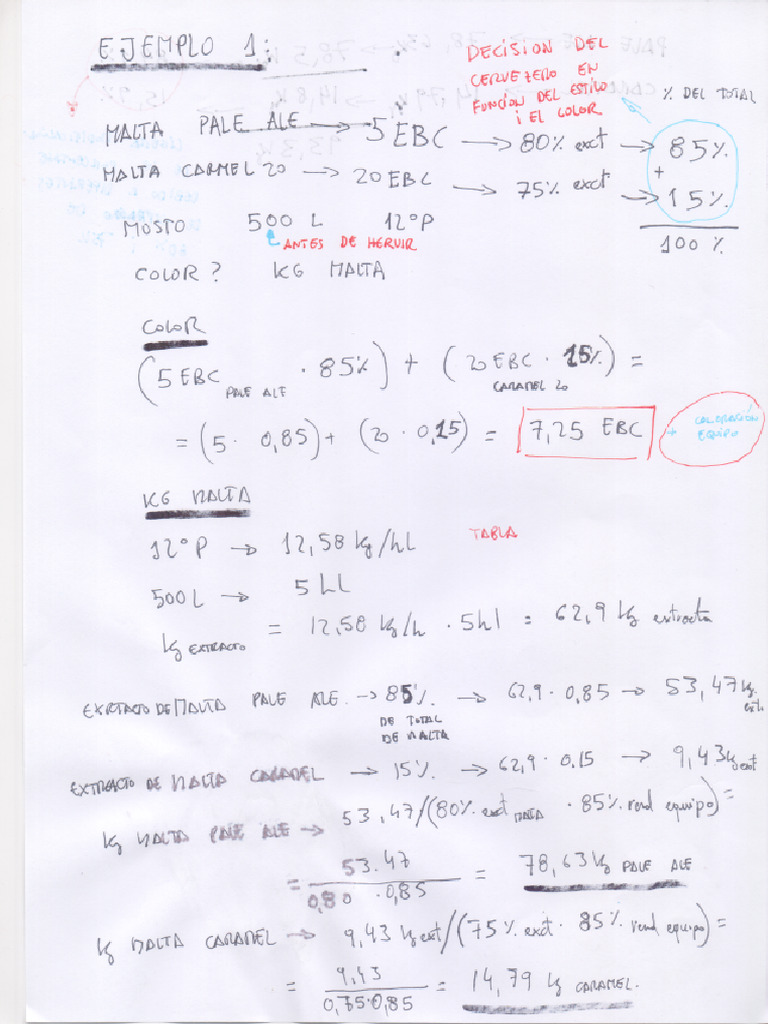 EJEMPLO 1:
DECISION DEL
CERVEZERO EN
FUNCION DEL ESTILO
i EL COLOR
% DEL TOTAL
MALTA PALE ALE → 5 EBC → 80% ext → 85%
+
MALTA CARMEL 20 → 20 EBC → 75% ext → 15%
100 %
MOSTO 500 L 12°P
ANTES DE HERVIR
COLOR? KG MALTA
COLOR
(5 EBC PALE ALE · 85%) + (20 EBC CARAMEL 20 · 15%) =
= (5 · 0,85) + (20 · 0,15) = 7,25 EBC + COLORACIÓN EQUIPO
KG MALTA
12°P → 12,58 kg/hl TABLA
500 L → 5 HL
kg EXTRACTO = 12,58 kg/h · 5hl = 62,9 kg extracta
EXRTACTO DE MALTA PALE ALE → 85% DE TOTAL DE MALTA → 62,9 · 0,85 → 53,47 kg ext.
EXTRACTO DE MALTA CARAMEL → 15% → 62,9 · 0,15 → 9,43 kg ext
kg MALTA PALE ALE → 53,47/(80% ext MALTA · 85% rend equipo) =
= 53.47 / 0,80 · 0,85 = 78,63 kg PALE ALE
kg MALTA CARAMEL → 9,43 kg ext/(75% ext · 85% rend equipo) =
= 9,43 / 0,75·0,85 = 14,79 kg CARAMEL.